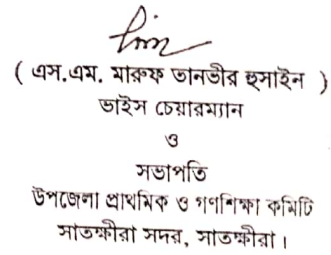 ( এস.এম. মারুফ তানভীর হুসাইন )
ভাইস চেয়ারম্যান
ও
সভাপতি
উপজেলা প্রাথমিক ও গণশিক্ষা কমিটি
সাতক্ষীরা সদর, সাতক্ষীরা।